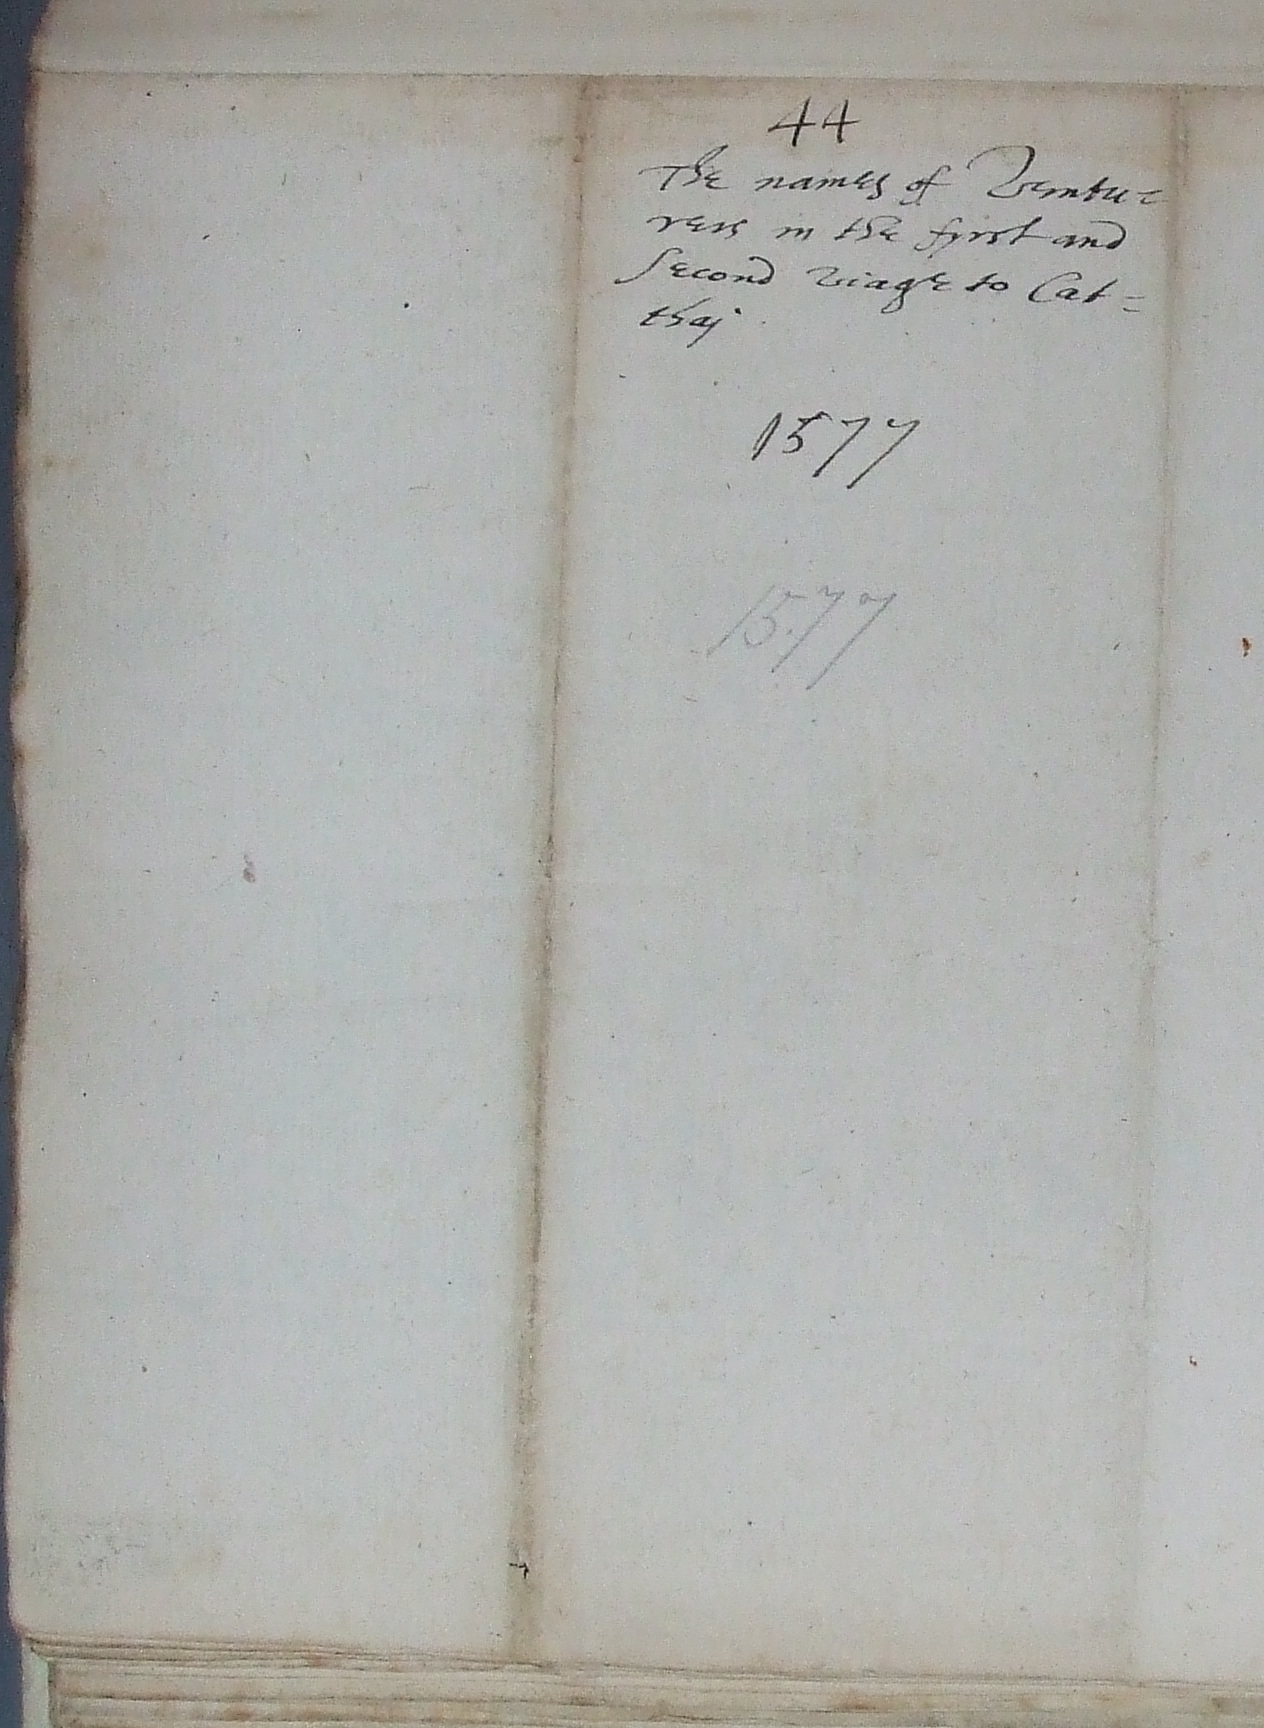 44
The names of Ventu=
rers in the fyrst and
second viage to Cat=
thaj
1577
1577